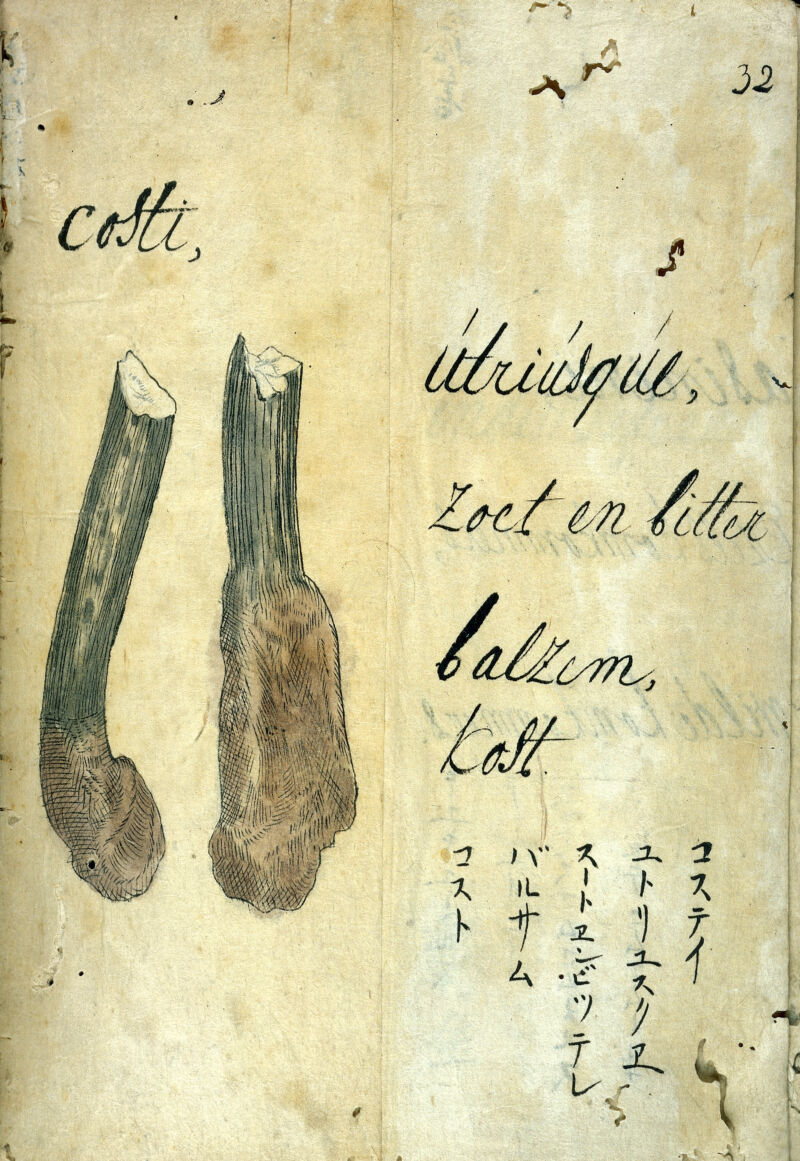 32
costi,
útriúsqúe,
zoet en bitter
balzem,
kost.
コステイ
ユトリユスクヱ
スートヱンビツテル
バルサム
コスト